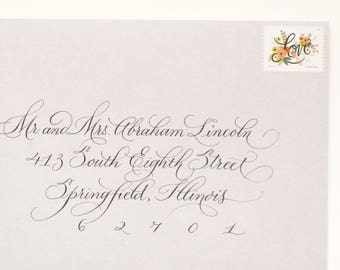 Love
Mr and Mrs. Abraham Lincoln
413 South Eighth Street
Springfield, Illinois
6 2 7 0 1